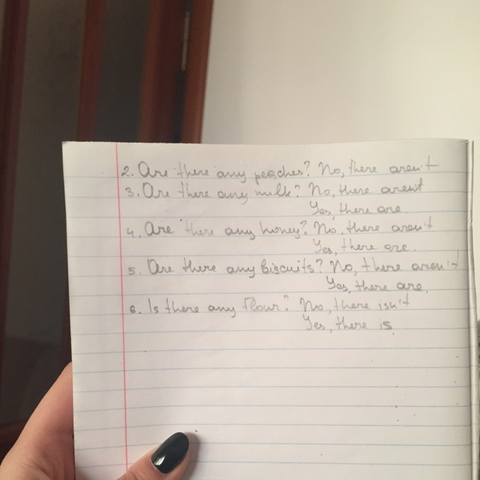 2. Are there any peaches? No, there aren't
3. Are there any milk? No, there aren't
Yes, there are.
4. Are there any honey? No, there aren't
Yes, there are.
5. Are there any Biscuits? No, there aren't
Yes, there are.
6. Is there any flour? No, there isn't
Yes, there is.